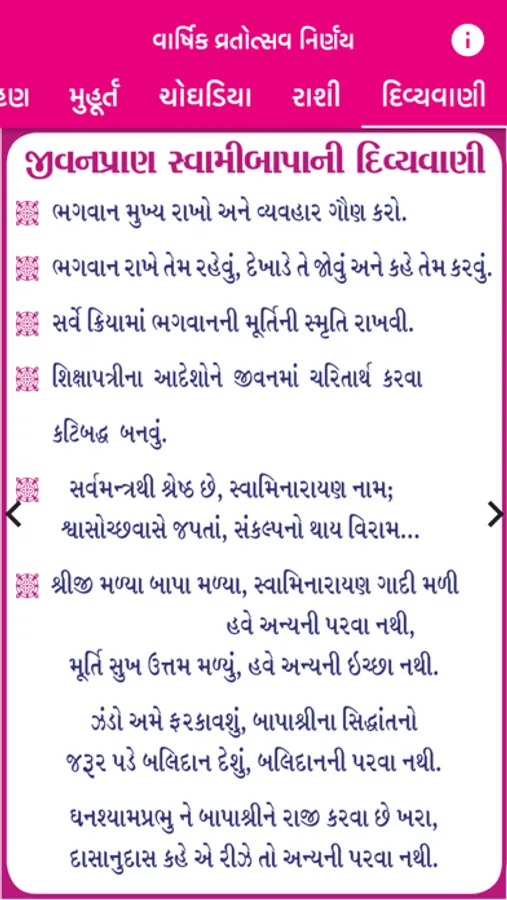 વાર્ષિક વ્રતોત્સવ નિર્ણય
હણ મુહૂર્ત ચોઘડિયા રાશી દિવ્યવાણી
જીવનપ્રાણ સ્વામીબાપાની દિવ્યવાણી
ભગવાન મુખ્ય રાખો અને વ્યવહાર ગૌણ કરો.
ભગવાન રાખે તેમ રહેવું, દેખાડે તે જોવું અને કહે તેમ કરવું.
સર્વે ક્રિયામાં ભગવાનની મૂર્તિની સ્મૃતિ રાખવી.
શિક્ષાપત્રીના આદેશોને જીવનમાં ચરિતાર્થ કરવા
કટિબદ્ધ બનવું.
સર્વમન્ત્રથી શ્રેષ્ઠ છે, સ્વામિનારાયણ નામ;
શ્વાસોચ્છવાસે જપતાં, સંકલ્પનો થાય વિરામ...
શ્રીજી મળ્યા બાપા મળ્યા, સ્વામિનારાયણ ગાદી મળી
હવે અન્યની પરવા નથી,
મૂર્તિ સુખ ઉત્તમ મળ્યું, હવે અન્યની ઇચ્છા નથી.
ઝંડો અમે ફરકાવશું, બાપાશ્રીના સિદ્ધાંતનો
જરૂર પડે બલિદાન દેશું, બલિદાનની પરવા નથી.
ઘનશ્યામપ્રભુ ને બાપાશ્રીને રાજી કરવા છે ખરા,
દાસાનુદાસ કહે એ રીઝે તો અન્યની પરવા નથી.